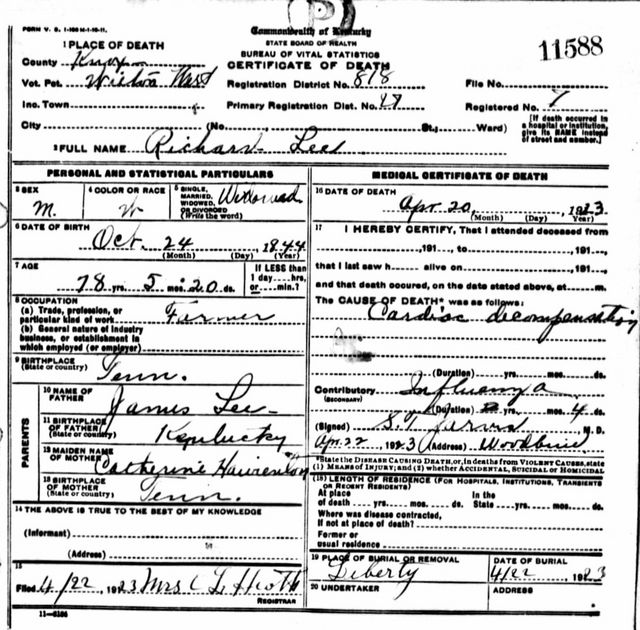 FORM V. S. 1-100M-1-10-11.
P
Commonwealth of Kentucky
STATE BOARD OF HEALTH
BUREAU OF VITAL STATISTICS
CERTIFICATE OF DEATH
11588
1 PLACE OF DEATH
County Knox
Vot. Pct. Wilton West
Inc. Town
City (No. St., Ward)
Registration District No. 818
Primary Registration Dist. No.
File No.
Registered No. 7
[If death occurred in a hospital or institution, give its NAME instead of street and number.]
2 FULL NAME Richard Lee
PERSONAL AND STATISTICAL PARTICULARS
3 SEX M.
4 COLOR OR RACE W
5 SINGLE, MARRIED, WIDOWED, OR DIVORCED (Write the word) Widowed
6 DATE OF BIRTH Oct. 24 1844
(Month) (Day) (Year)
7 AGE 78 yrs. 5 mos. 20 ds.
If LESS than 1 day....hrs. or....min.?
8 OCCUPATION
(a) Trade, profession, or particular kind of work Farmer
(b) General nature of industry business, or establishment in which employed (or employer)
9 BIRTHPLACE (State or country) Tenn.
PARENTS
10 NAME OF FATHER James Lee
11 BIRTHPLACE OF FATHER (State or country) Kentucky
12 MAIDEN NAME OF MOTHER Catherine
13 BIRTHPLACE OF MOTHER (State or country) Tenn.
14 THE ABOVE IS TRUE TO THE BEST OF MY KNOWLEDGE
(Informant)
(Address)
15
Filed 4/22 1923 Mrs C L
REGISTRAR
11-5184
MEDICAL CERTIFICATE OF DEATH
16 DATE OF DEATH Apr. 20 1923
(Month) (Day) (Year)
17 I HEREBY CERTIFY, That I attended deceased from
191..., to 191...,
that I last saw h alive on 191...,
and that death occured, on the date stated above, at m.
The CAUSE OF DEATH* was as follows:
Cardiac decompensation
(Duration) yrs. mos. ds.
Contributory (SECONDARY) Influenza
(Duration) yrs. mos. 4 ds.
(Signed) M. D.
Apr. 22 1923 (Address) Woodbine
*State the DISEASE CAUSING DEATH, or, in deaths from VIOLENT CAUSES, state (1) MEANS OF INJURY; and (2) whether ACCIDENTAL, SUICIDAL or HOMICIDAL
(18) LENGTH OF RESIDENCE (FOR HOSPITALS, INSTITUTIONS, TRANSIENTS OR RECENT RESIDENTS)
At place of death yrs. mos. ds. In the State yrs. mos. ds.
Where was disease contracted, If not at place of death?
Former or usual residence
19 PLACE OF BURIAL OR REMOVAL Liberty
DATE OF BURIAL 4/22 1923
20 UNDERTAKER
ADDRESS